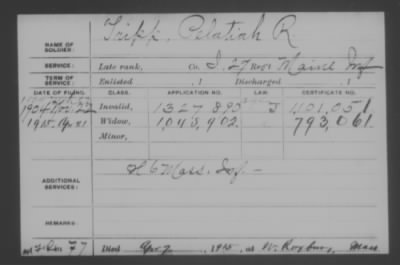 Tripp, Pelatiah R.
NAME OF SOLDIER:
SERVICE: Late rank, Co. I, 27 Reg't Maine Inf
TERM OF SERVICE: Enlisted , 1 Discharged , 1
DATE OF FILING. CLASS. APPLICATION NO. LAW. CERTIFICATE NO.
1904 Invalid, 1327895 1101,051
1915, Apr 21 Widow, 1,043,902 793,061.
Minor,
ADDITIONAL SERVICES: H 6 Mass. Inf. —
REMARKS:
Died Apr 7, 1915, at W. Roxbury, Mass.